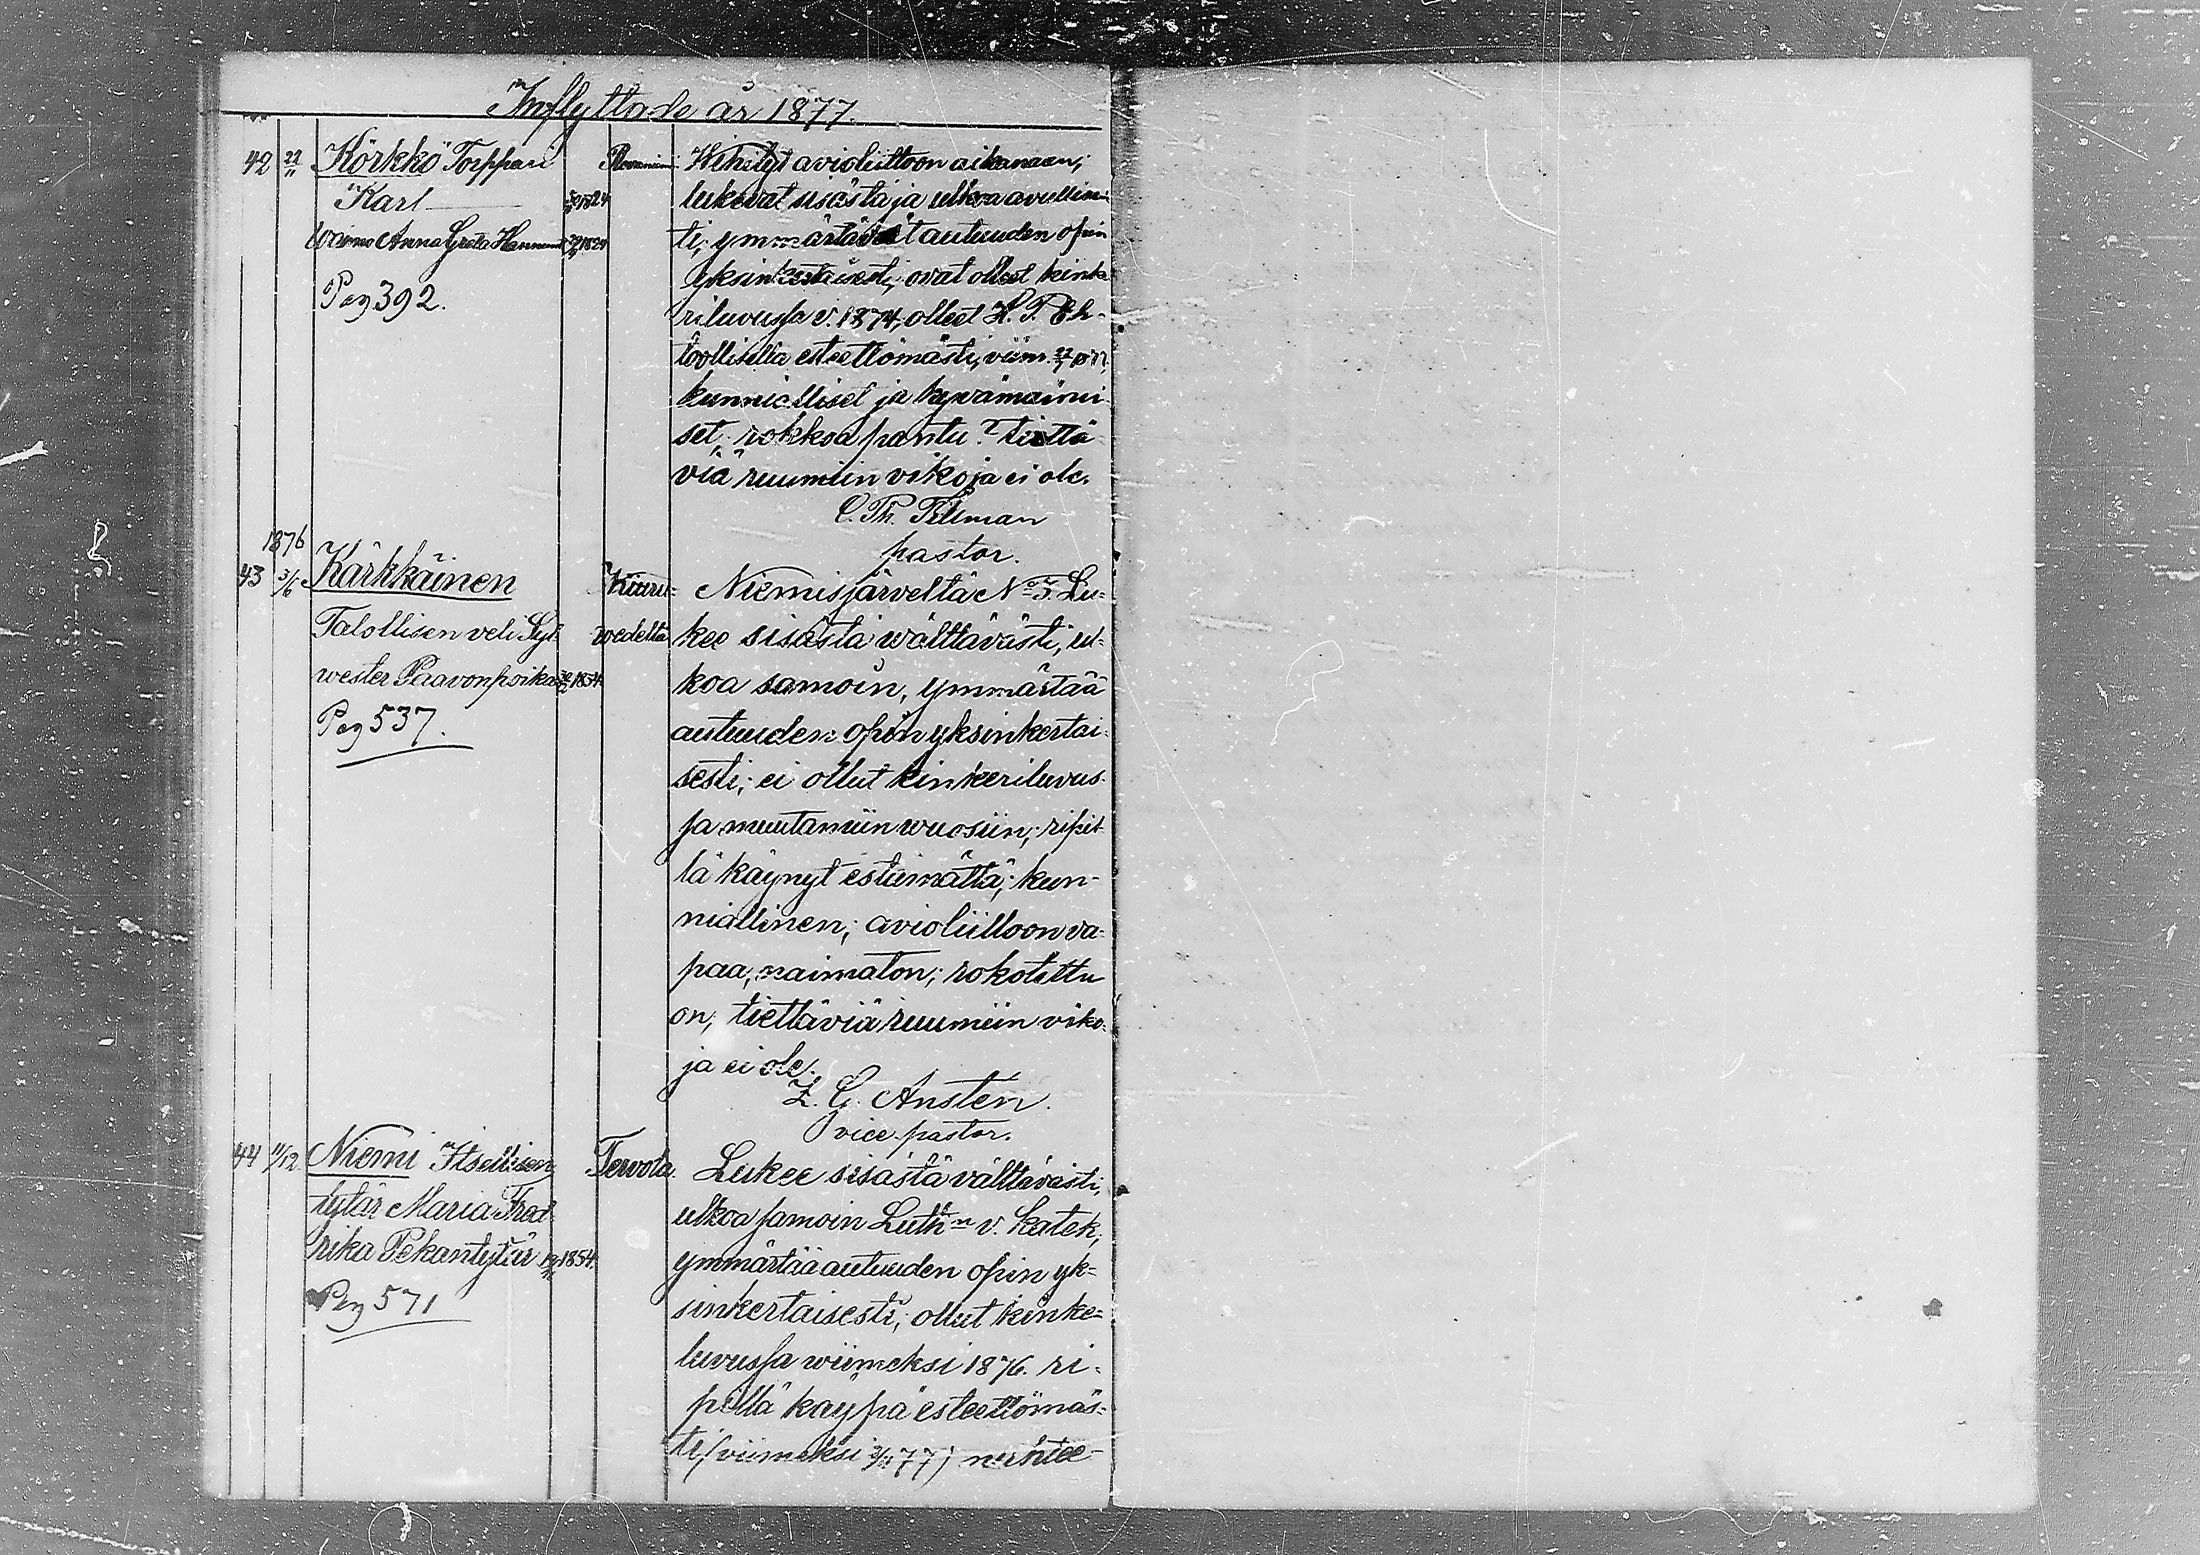 Inflyttade år 1877.
42 22/11 Körkkö Torppari
Karl 1824
waimo Anna Greta Hannunt. 1824
Pag 392.
Rovaniemi
Wihityt avioliittoon aikanaan;
lukevat sisästä ja ulkoa avullises-
ti; ymmärtävät autuuden opin
yksinkertaisesti; ovat olleet kinke-
riluvussa v. 1874, olleet H. P. Eh-
toollisella esteettömästi, viim. 1877,
kunnialliset ja hyvämaini-
set; rokkoa pantu? tiettä-
viä ruumiin vikoja ei ole.
C. Th. Tillman
pastor.
1876
43 3/6 Kärkkäinen
Talollisen veli Syl-
wester Paavonpoika 1854
Pag 537.
Kiuru-
wedeltä
Niemisjärveltä No 7. Lu-
kee sisästä wälttävästi, ul-
koa samoin, ymmärtää
autuuden opin yksinkertai-
sesti; ei ollut kinkeriluvus-
sa muutamiin wuosiin; ripil-
lä käynyt estämättä; kun-
niallinen; avioliittoon va-
paa, naimaton; rokotettu
on; tiettäviä ruumiin viko-
ja ei ole.
Z. G. Anstén.
vice pastor.
44 11/12 Niemi Itsellisen
tytär Maria Fred-
rika Pekantytär 1854.
Pag 571
Tervola.
Lukee sisästä välttävästi,
ulkoa samoin Luthn v. katek;
ymmärtää autuuden opin yk-
sinkertaisesti; ollut kinke-
luvussa wiimeksi 1876. ri-
pillä käypä esteettömäs-
ti (viimeksi 77) nuhtee-